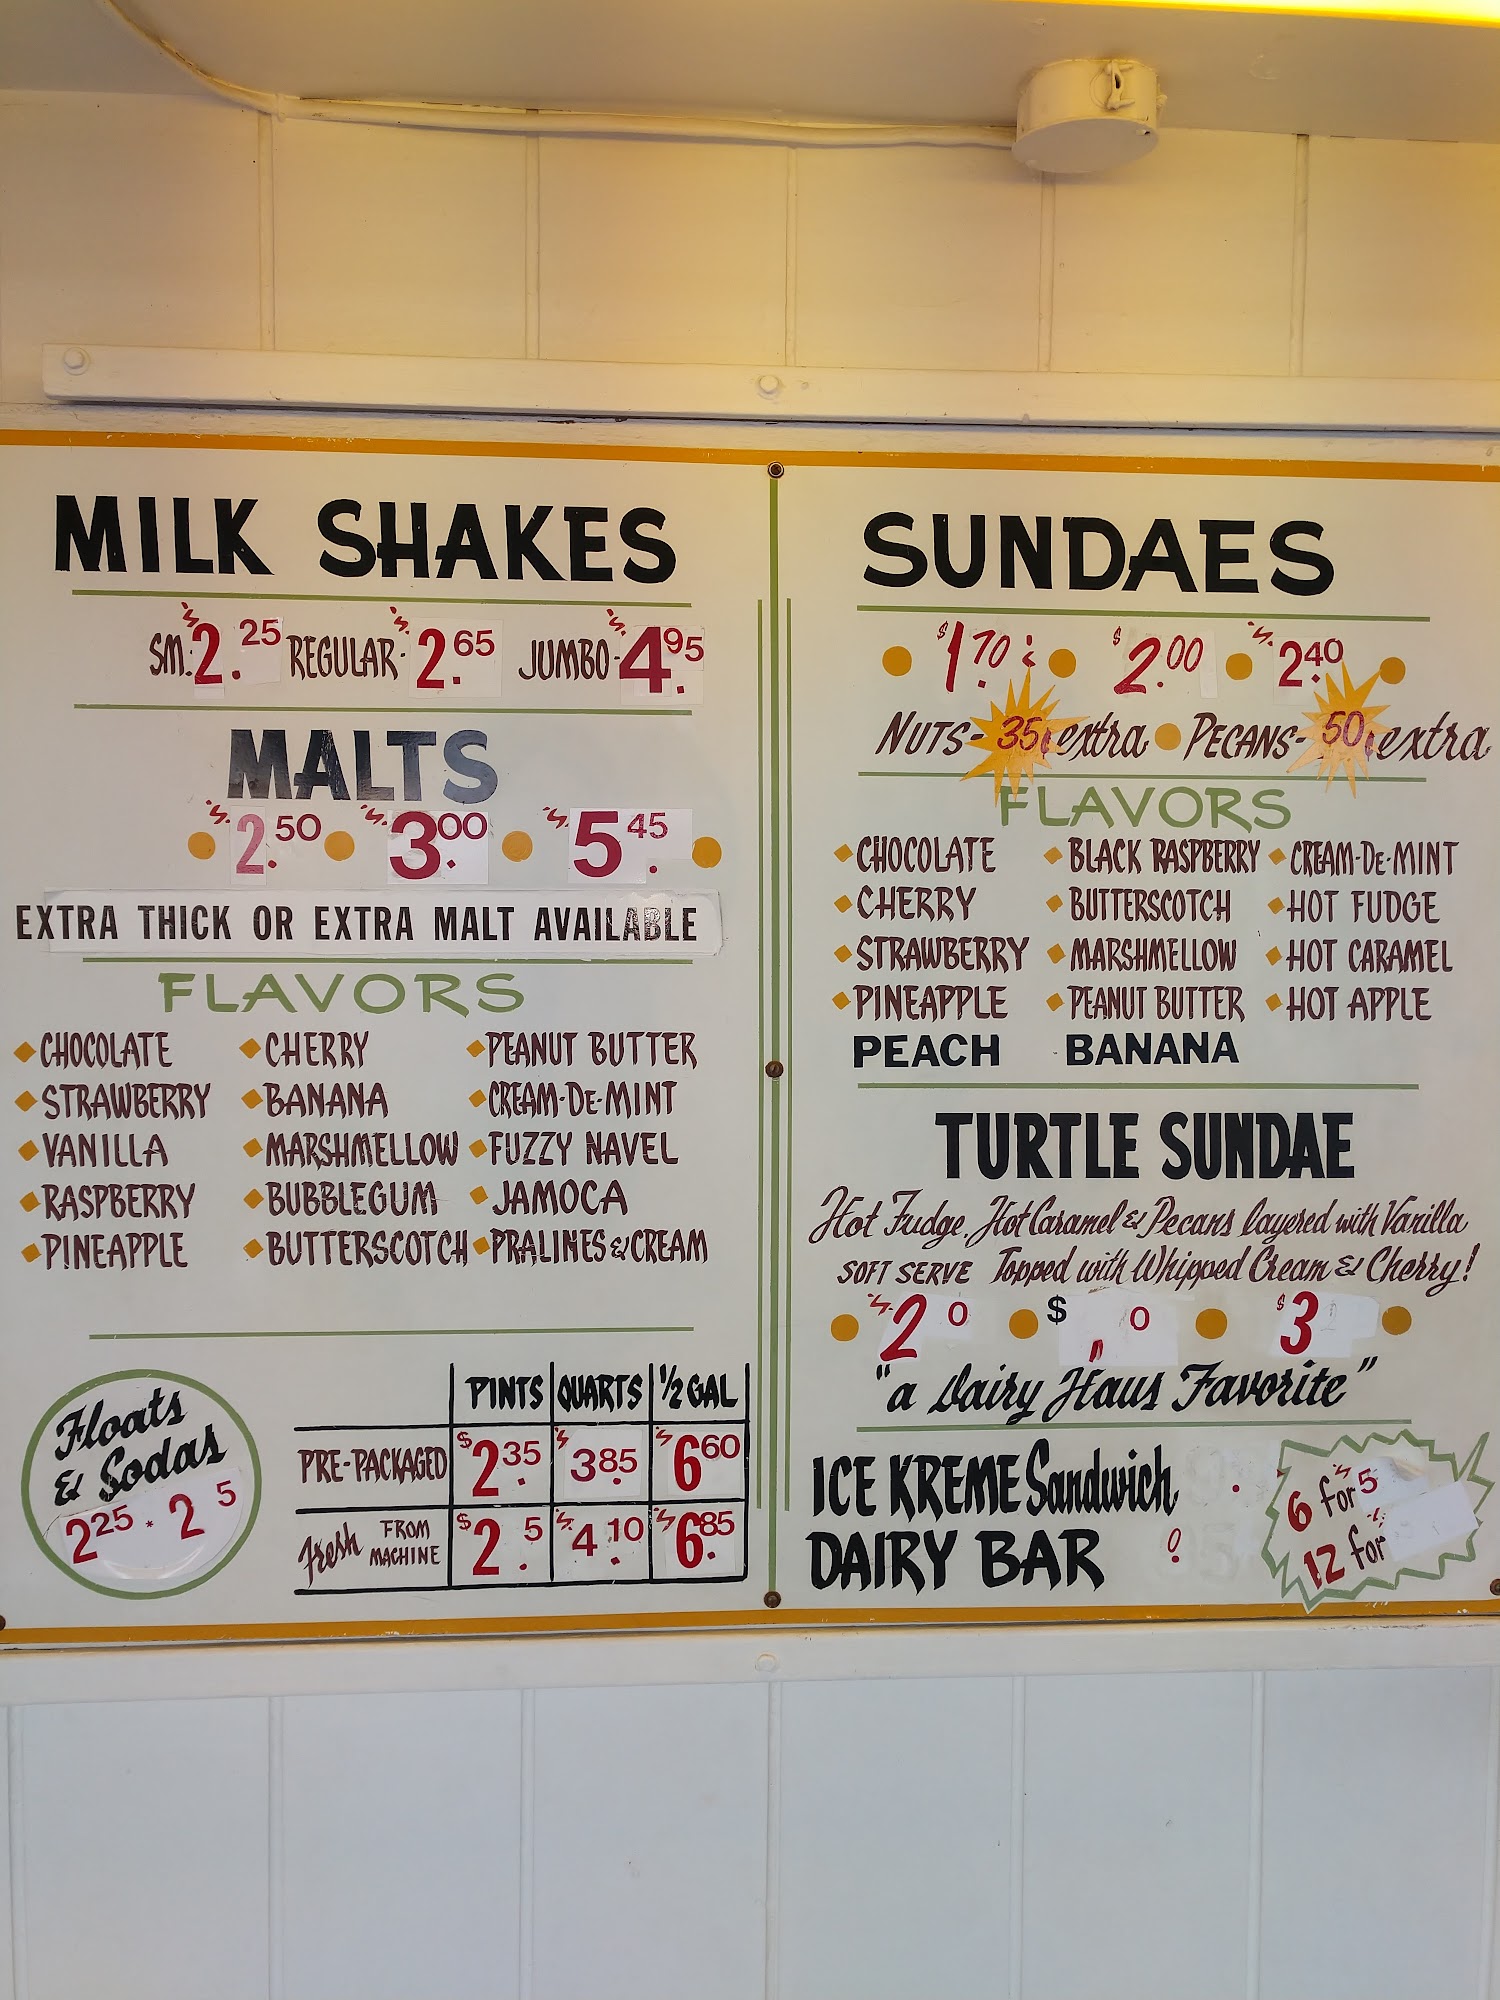 MILK SHAKES
SM. $2.25 REGULAR- $2.65 JUMBO- $4.95
MALTS
$2.50 $3.00 $5.45
EXTRA THICK OR EXTRA MALT AVAILABLE
FLAVORS
CHOCOLATE CHERRY PEANUT BUTTER
STRAWBERRY BANANA CREAM-DE-MINT
VANILLA MARSHMELLOW FUZZY NAVEL
RASPBERRY BUBBLEGUM JAMOCA
PINEAPPLE BUTTERSCOTCH PRALINES & CREAM
Floats
& Sodas
2.25 2 5
PINTS QUARTS 1/2 GAL
PRE-PACKAGED $2.35 $3.85 $6.60
Fresh FROM MACHINE $2. 5 $4.10 $6.85
SUNDAES
$1.70 $2.00 $2.40
NUTS- 35¢ extra PECANS- 50¢ extra
FLAVORS
CHOCOLATE BLACK RASPBERRY CREAM-DE-MINT
CHERRY BUTTERSCOTCH HOT FUDGE
STRAWBERRY MARSHMELLOW HOT CARAMEL
PINEAPPLE PEANUT BUTTER HOT APPLE
PEACH BANANA
TURTLE SUNDAE
Hot Fudge, Hot Caramel & Pecans layered with Vanilla
SOFT SERVE Topped with Whipped Cream & Cherry!
$2 0 $ 0 $3
"a Dairy Haus Favorite"
ICE KREME Sandwich
DAIRY BAR
6 for $5
12 for $